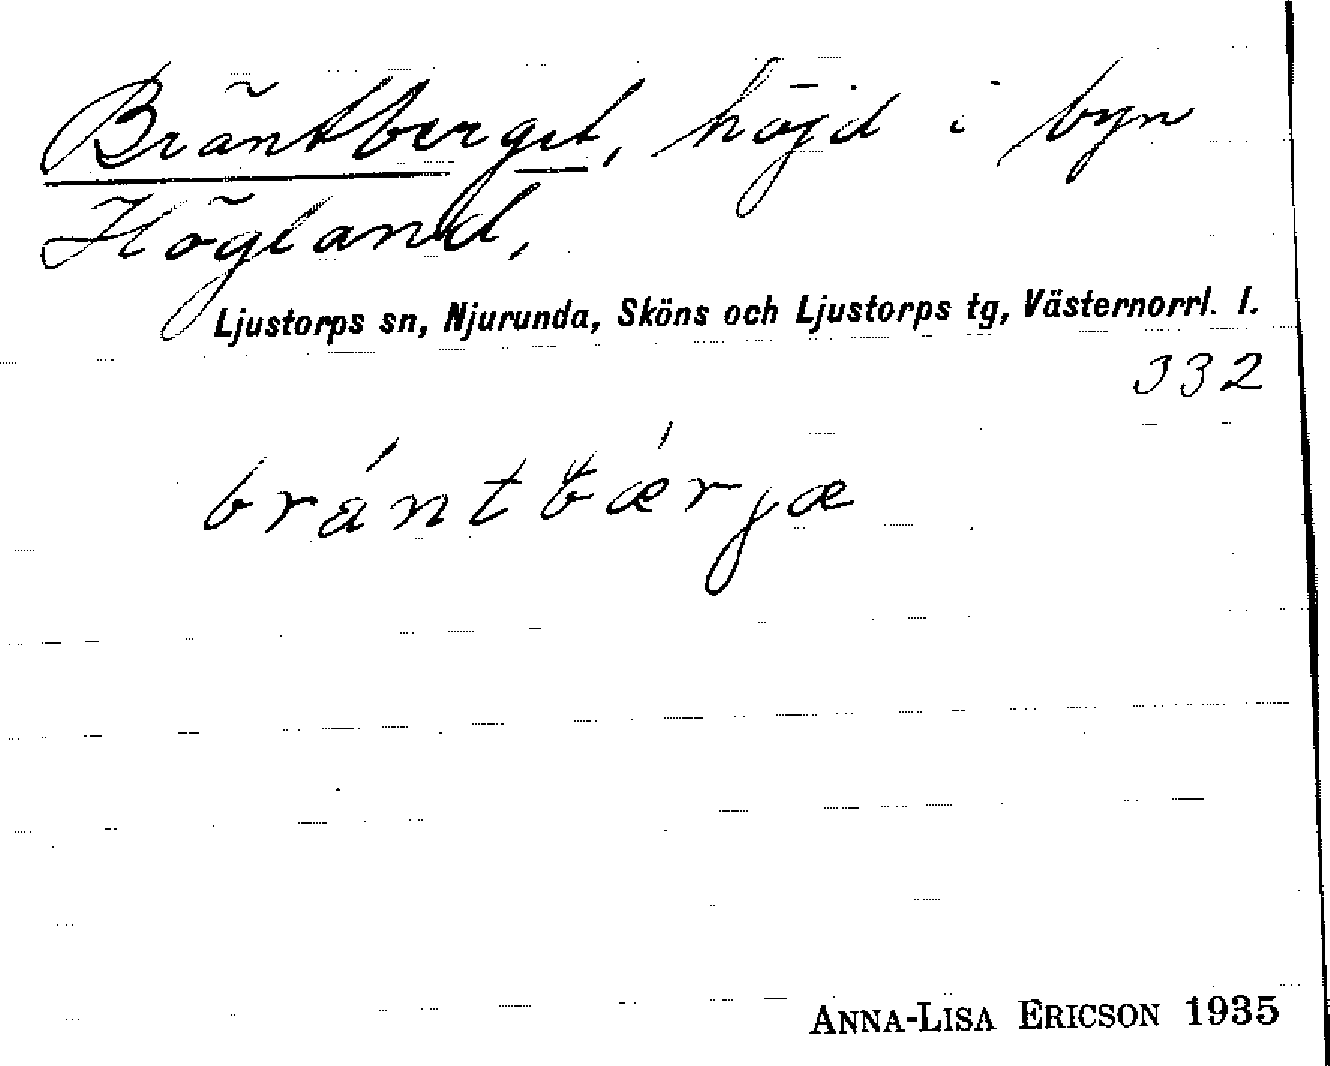 Bräntberget, höjd i byn
Högland,
Ljustorps sn, Njurunda, Sköns och Ljustorps tg, Västernorrl. l.
332
brántbǽrjæ
ANNA-LISA ERICSON 1935